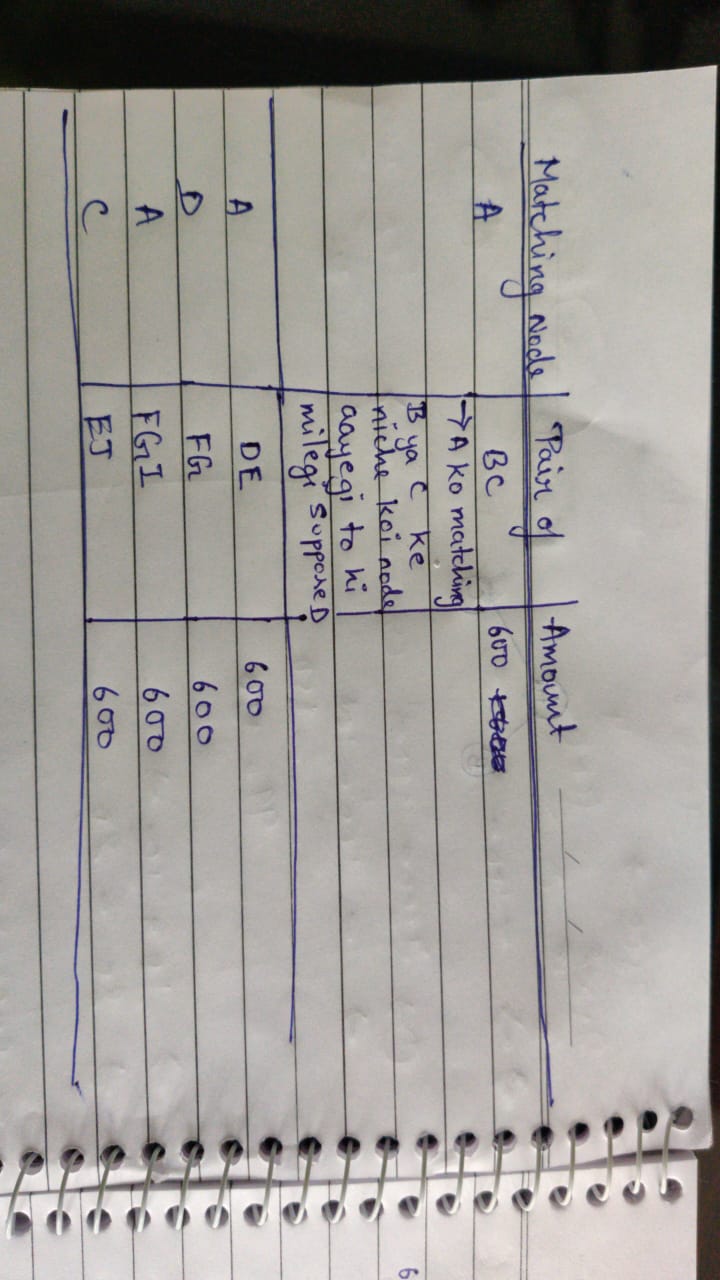 Matching Node Pair of Amount
A BC 600
→ A ko matching
B ya C ke
niche koi node
aayegi to hi
milegi suppose D
A DE 600
D FG 600
A FGI 600
C EJ 600
6